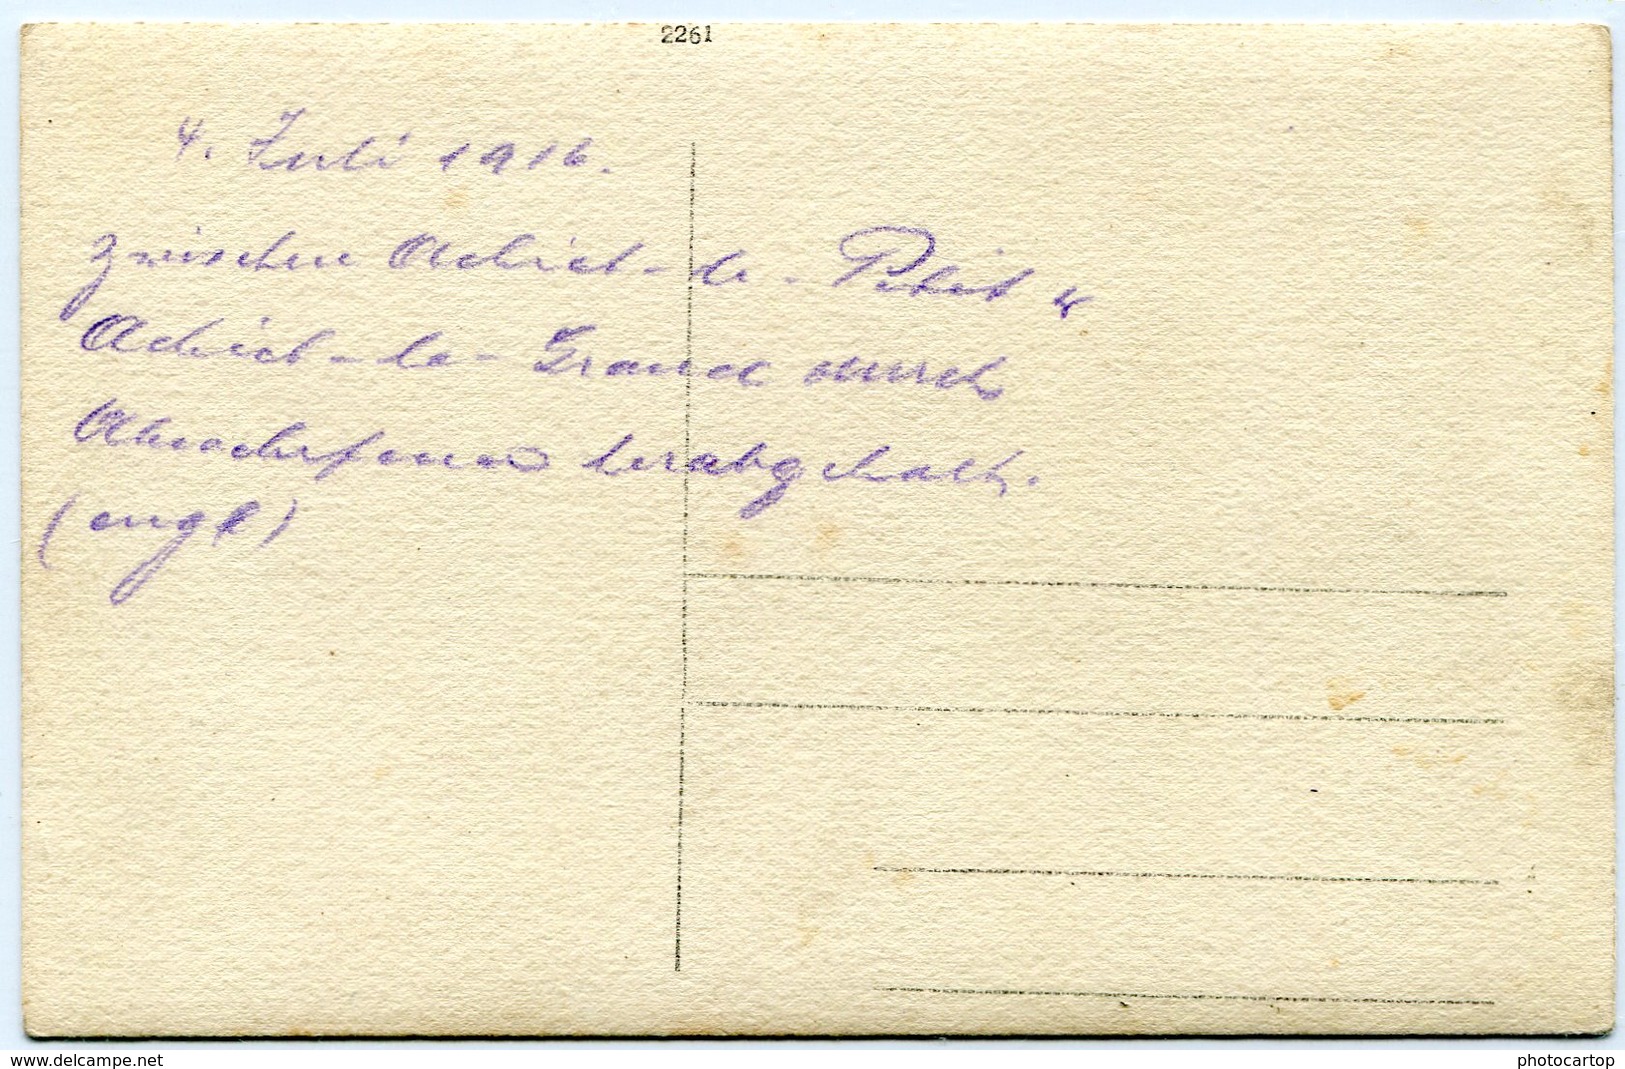 2261
4. Juli 1916.
zwischen Achiet-le-Petit u
Achiet-le-Grand durch
herabgeholt.
(engl)
www.delcampe.net
photocartop